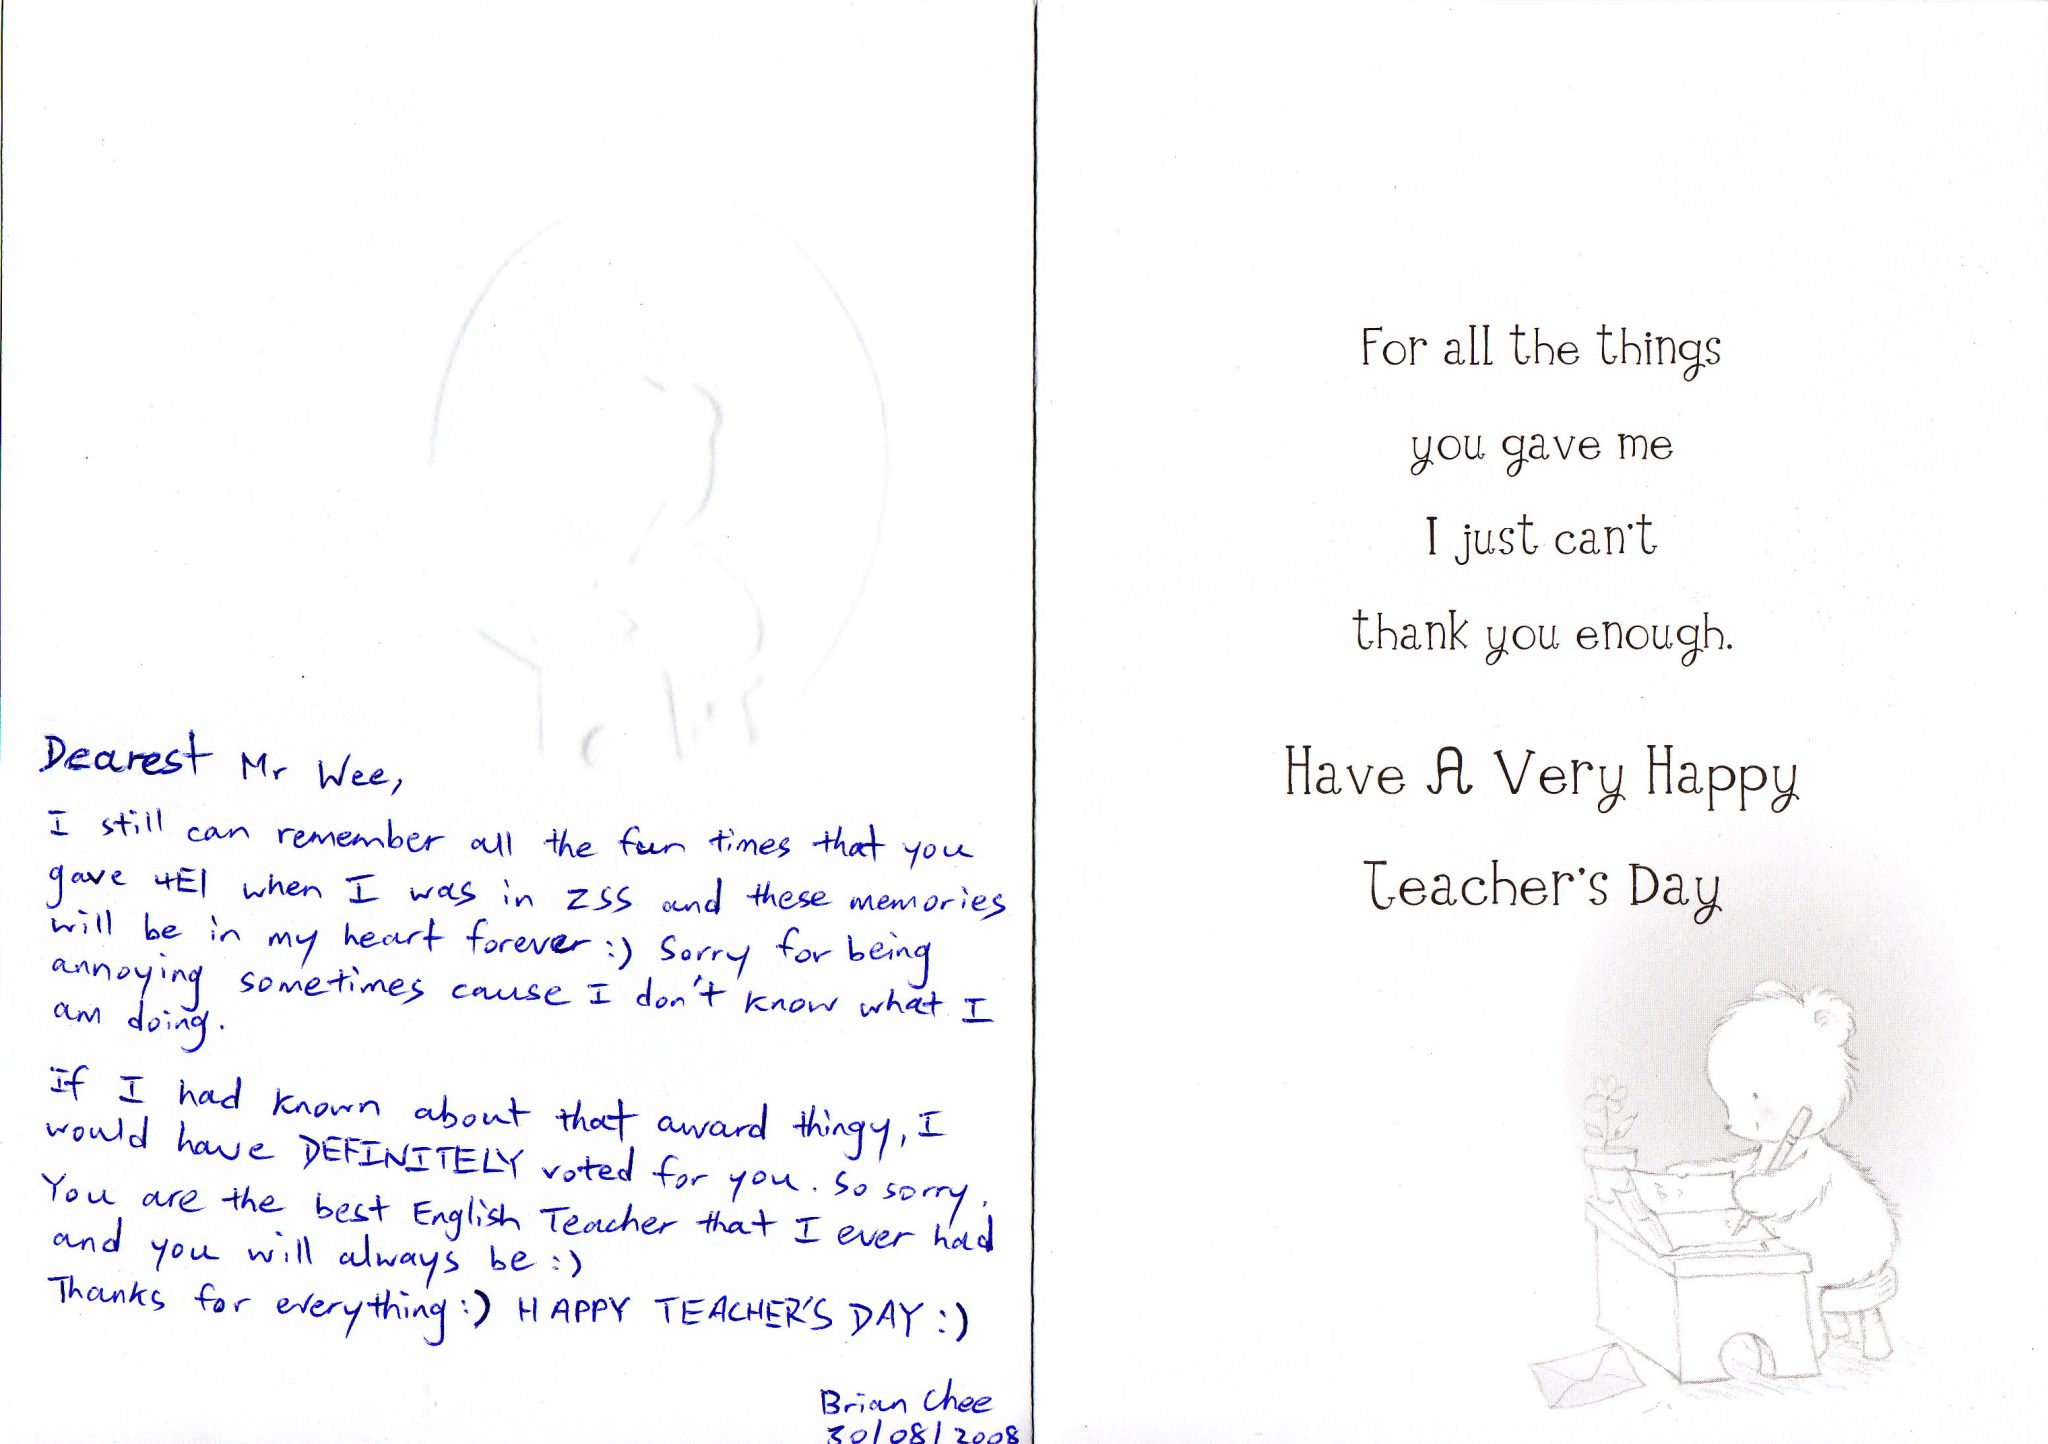 Dearest Mr Wee,
I still can remember all the fun times that you
gave 4E1 when I was in ZSS and these memories
will be in my heart forever :) Sorry for being
annoying sometimes cause I don't know what I
am doing.
If I had known about that award thingy, I
would have DEFINITELY voted for you. So sorry.
You are the best English Teacher that I ever had
and you will always be :)
Thanks for everything :) HAPPY TEACHER'S DAY :)
Brian Chee
30/08/2008
For all the things
you gave me
I just can't
thank you enough.
Have A Very Happy
Teacher's Day